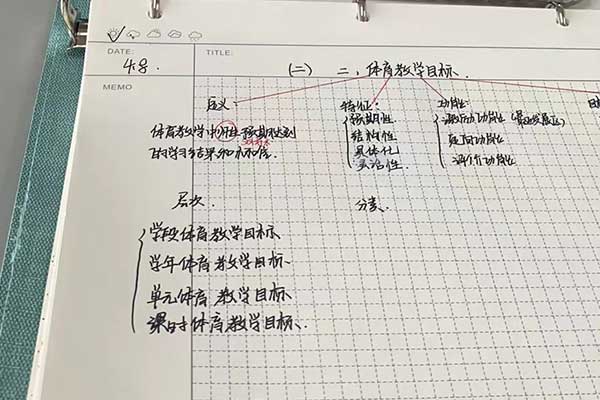 DATE:
TITLE:
4.8.
(二) 二、体育教学目标
MEMO
定义
特征:
功能
体育教学中师生预期达到
的学习结果和标准。
预期性
结构性
具体化
灵活性
激励功能
定向功能
评价功能
层次.
分类
学段体育教学目标
学年体育教学目标
单元体育教学目标
课时体育教学目标.